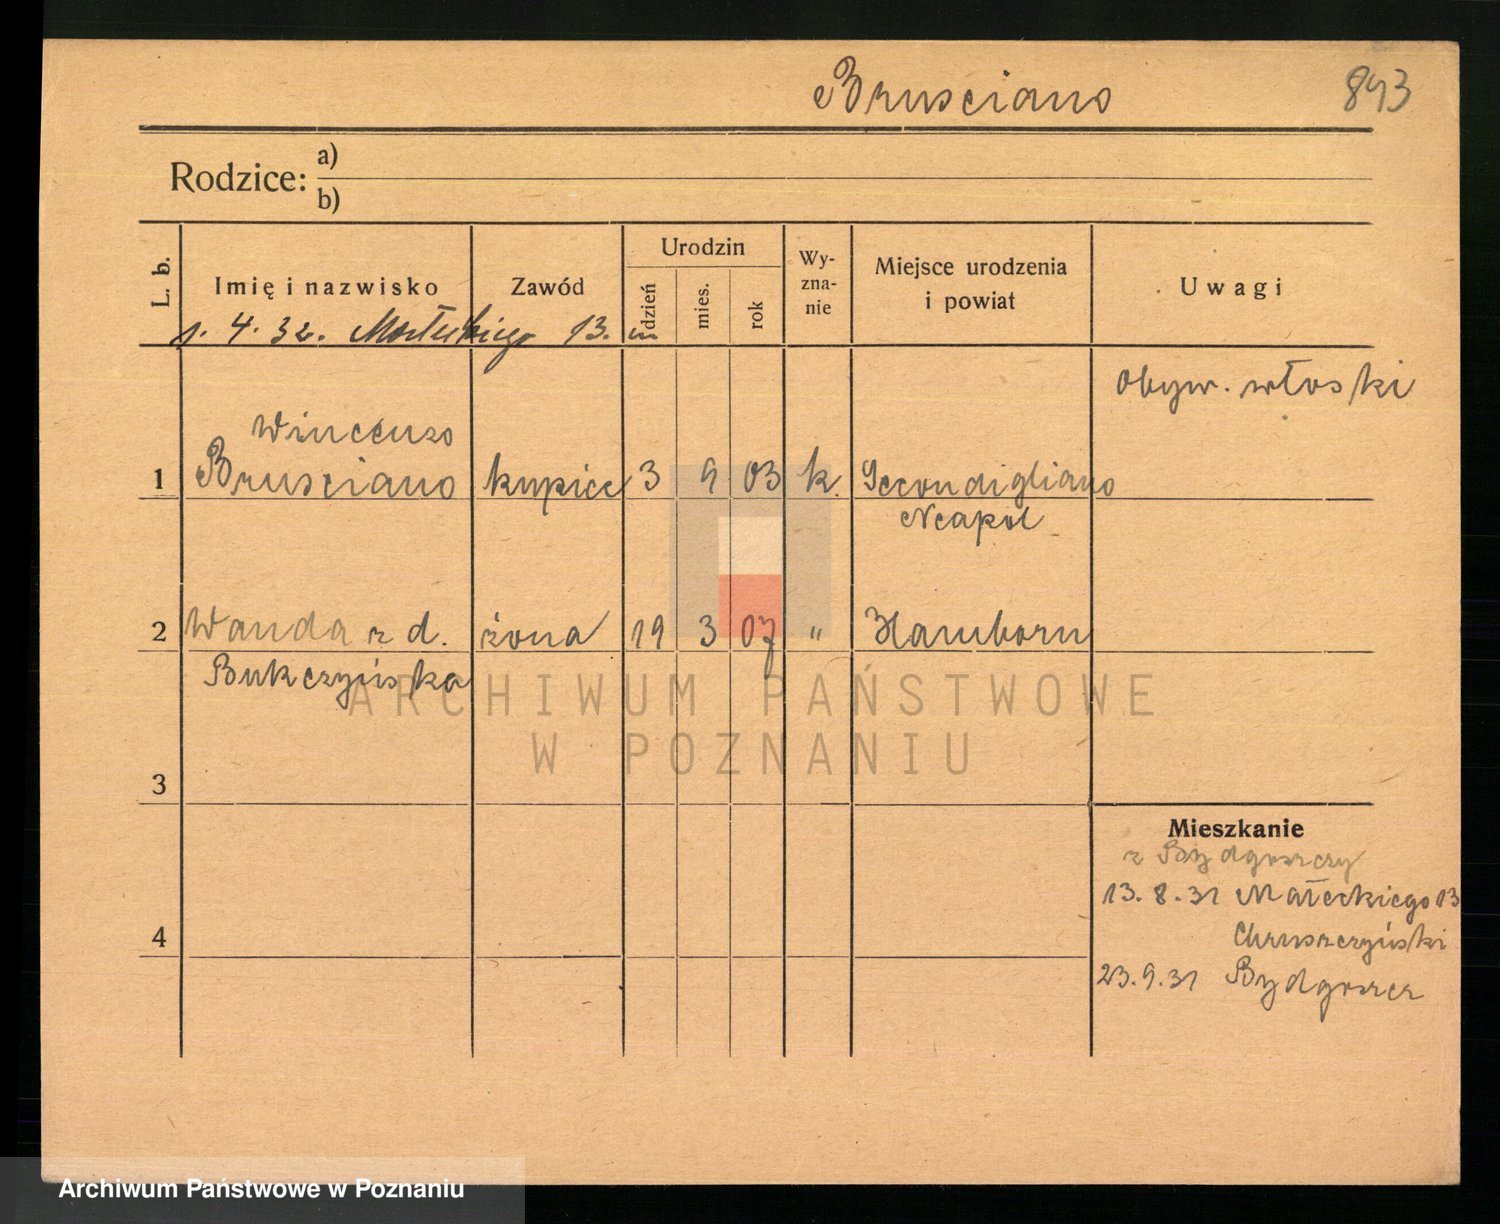 Brusciano 893
Rodzice: a)
b)
L. b.
Imię i nazwisko
Zawód
Urodzin
dzień
mies.
rok
Wy-
zna-
nie
Miejsce urodzenia
i powiat
Uwagi
1. 4. 32. Małeckiego 13. m
Obyw. włoski
Wincenzo
1 Brusciano kupiec 3 9 03 k. Secondigliano
Neapol
2 Wanda z d. żona 19 3 07 " Hamborn
Bukczyńska
ARCHIWUM PAŃSTWOWE
W POZNANIU
3
Mieszkanie
z Bydgoszczy
13. 8. 31 Małeckiego 13
4
Chruszczyński
23. 9. 31 Bydgoszcz
Archiwum Państwowe w Poznaniu